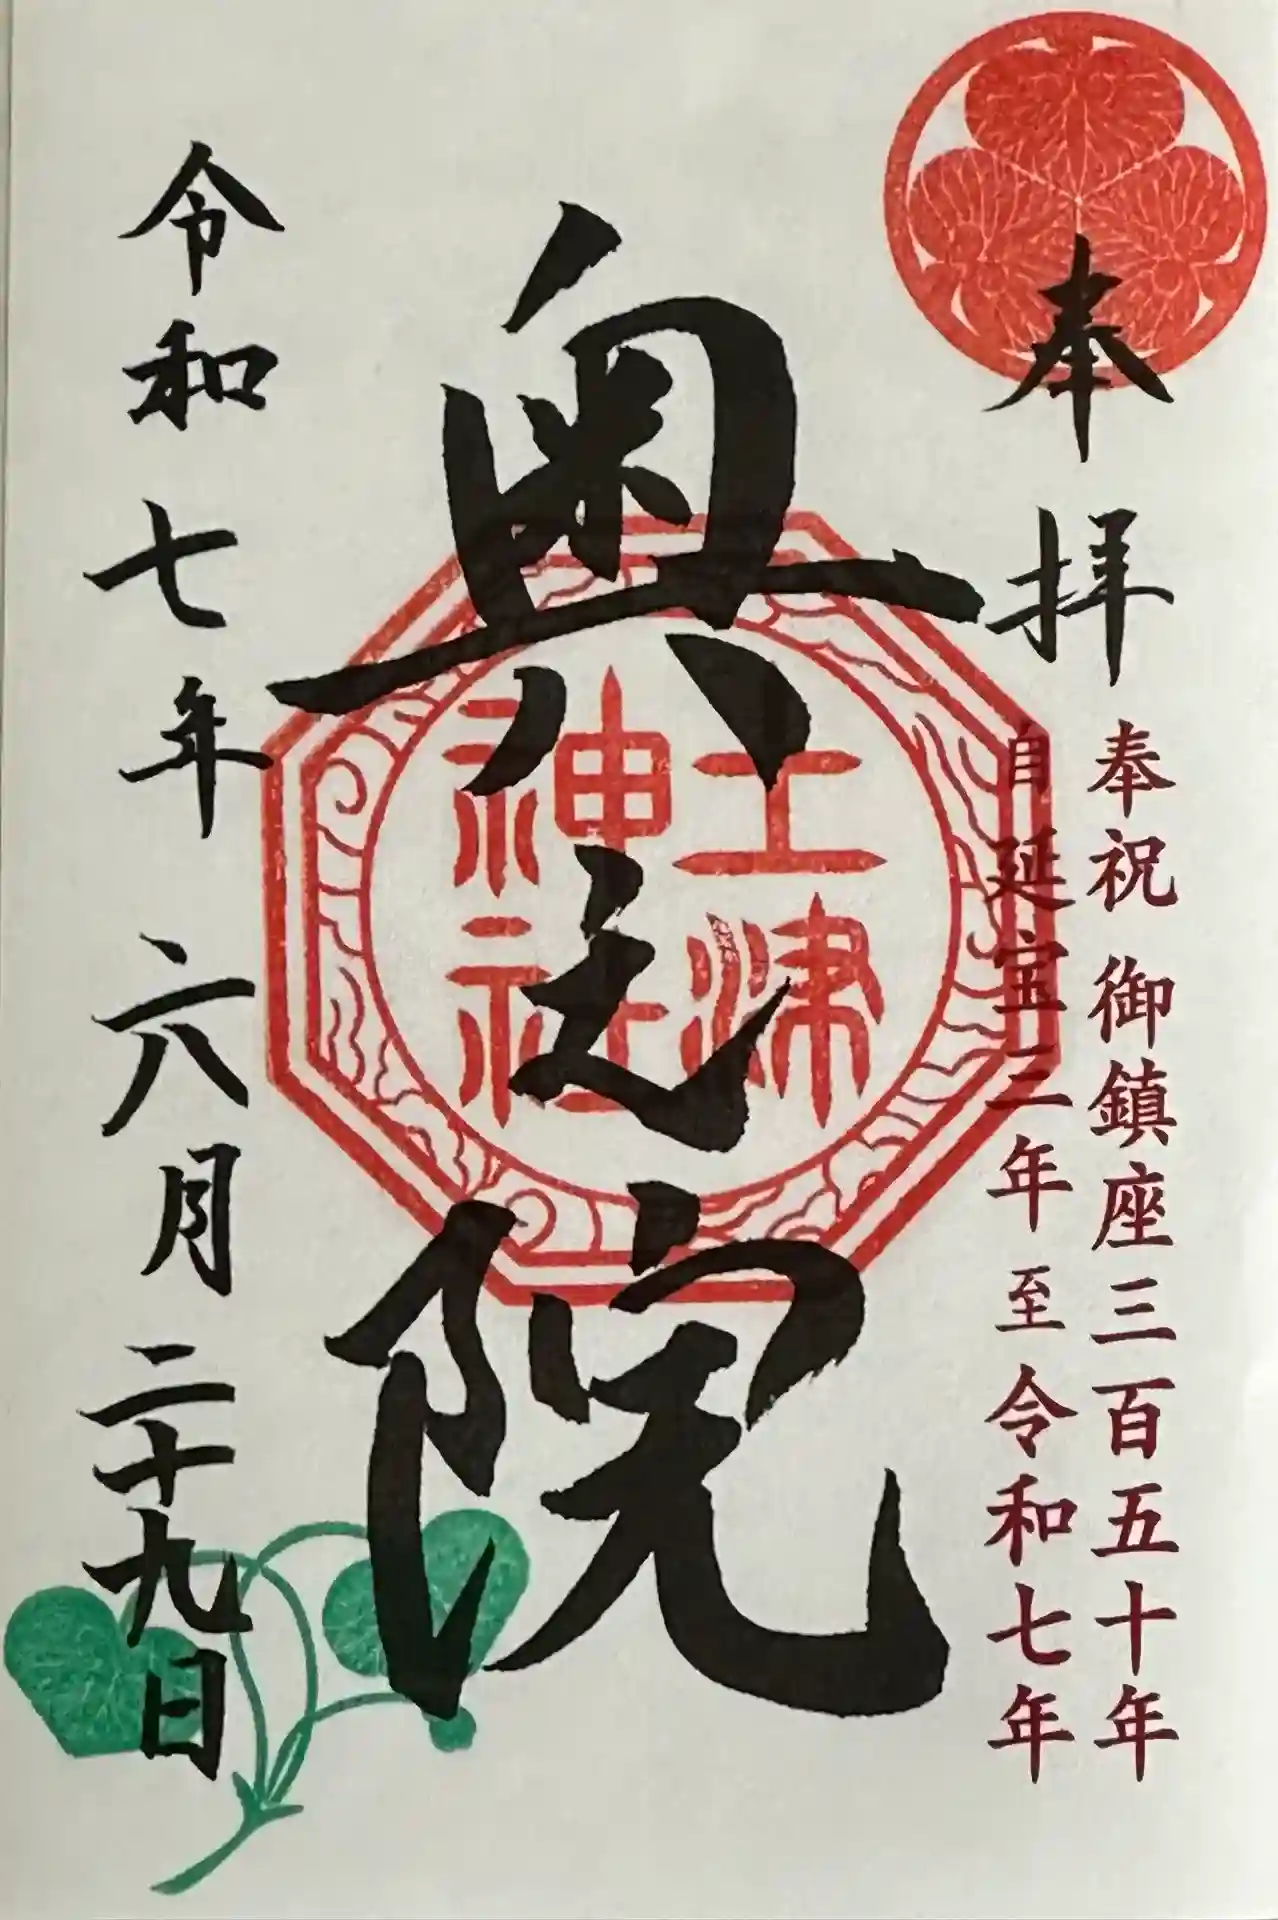 奉拝
奉祝 御鎮座三百五十年
自 延宝三年 至 令和七年
奥之院
土津
神社
令和七年六月二十九日